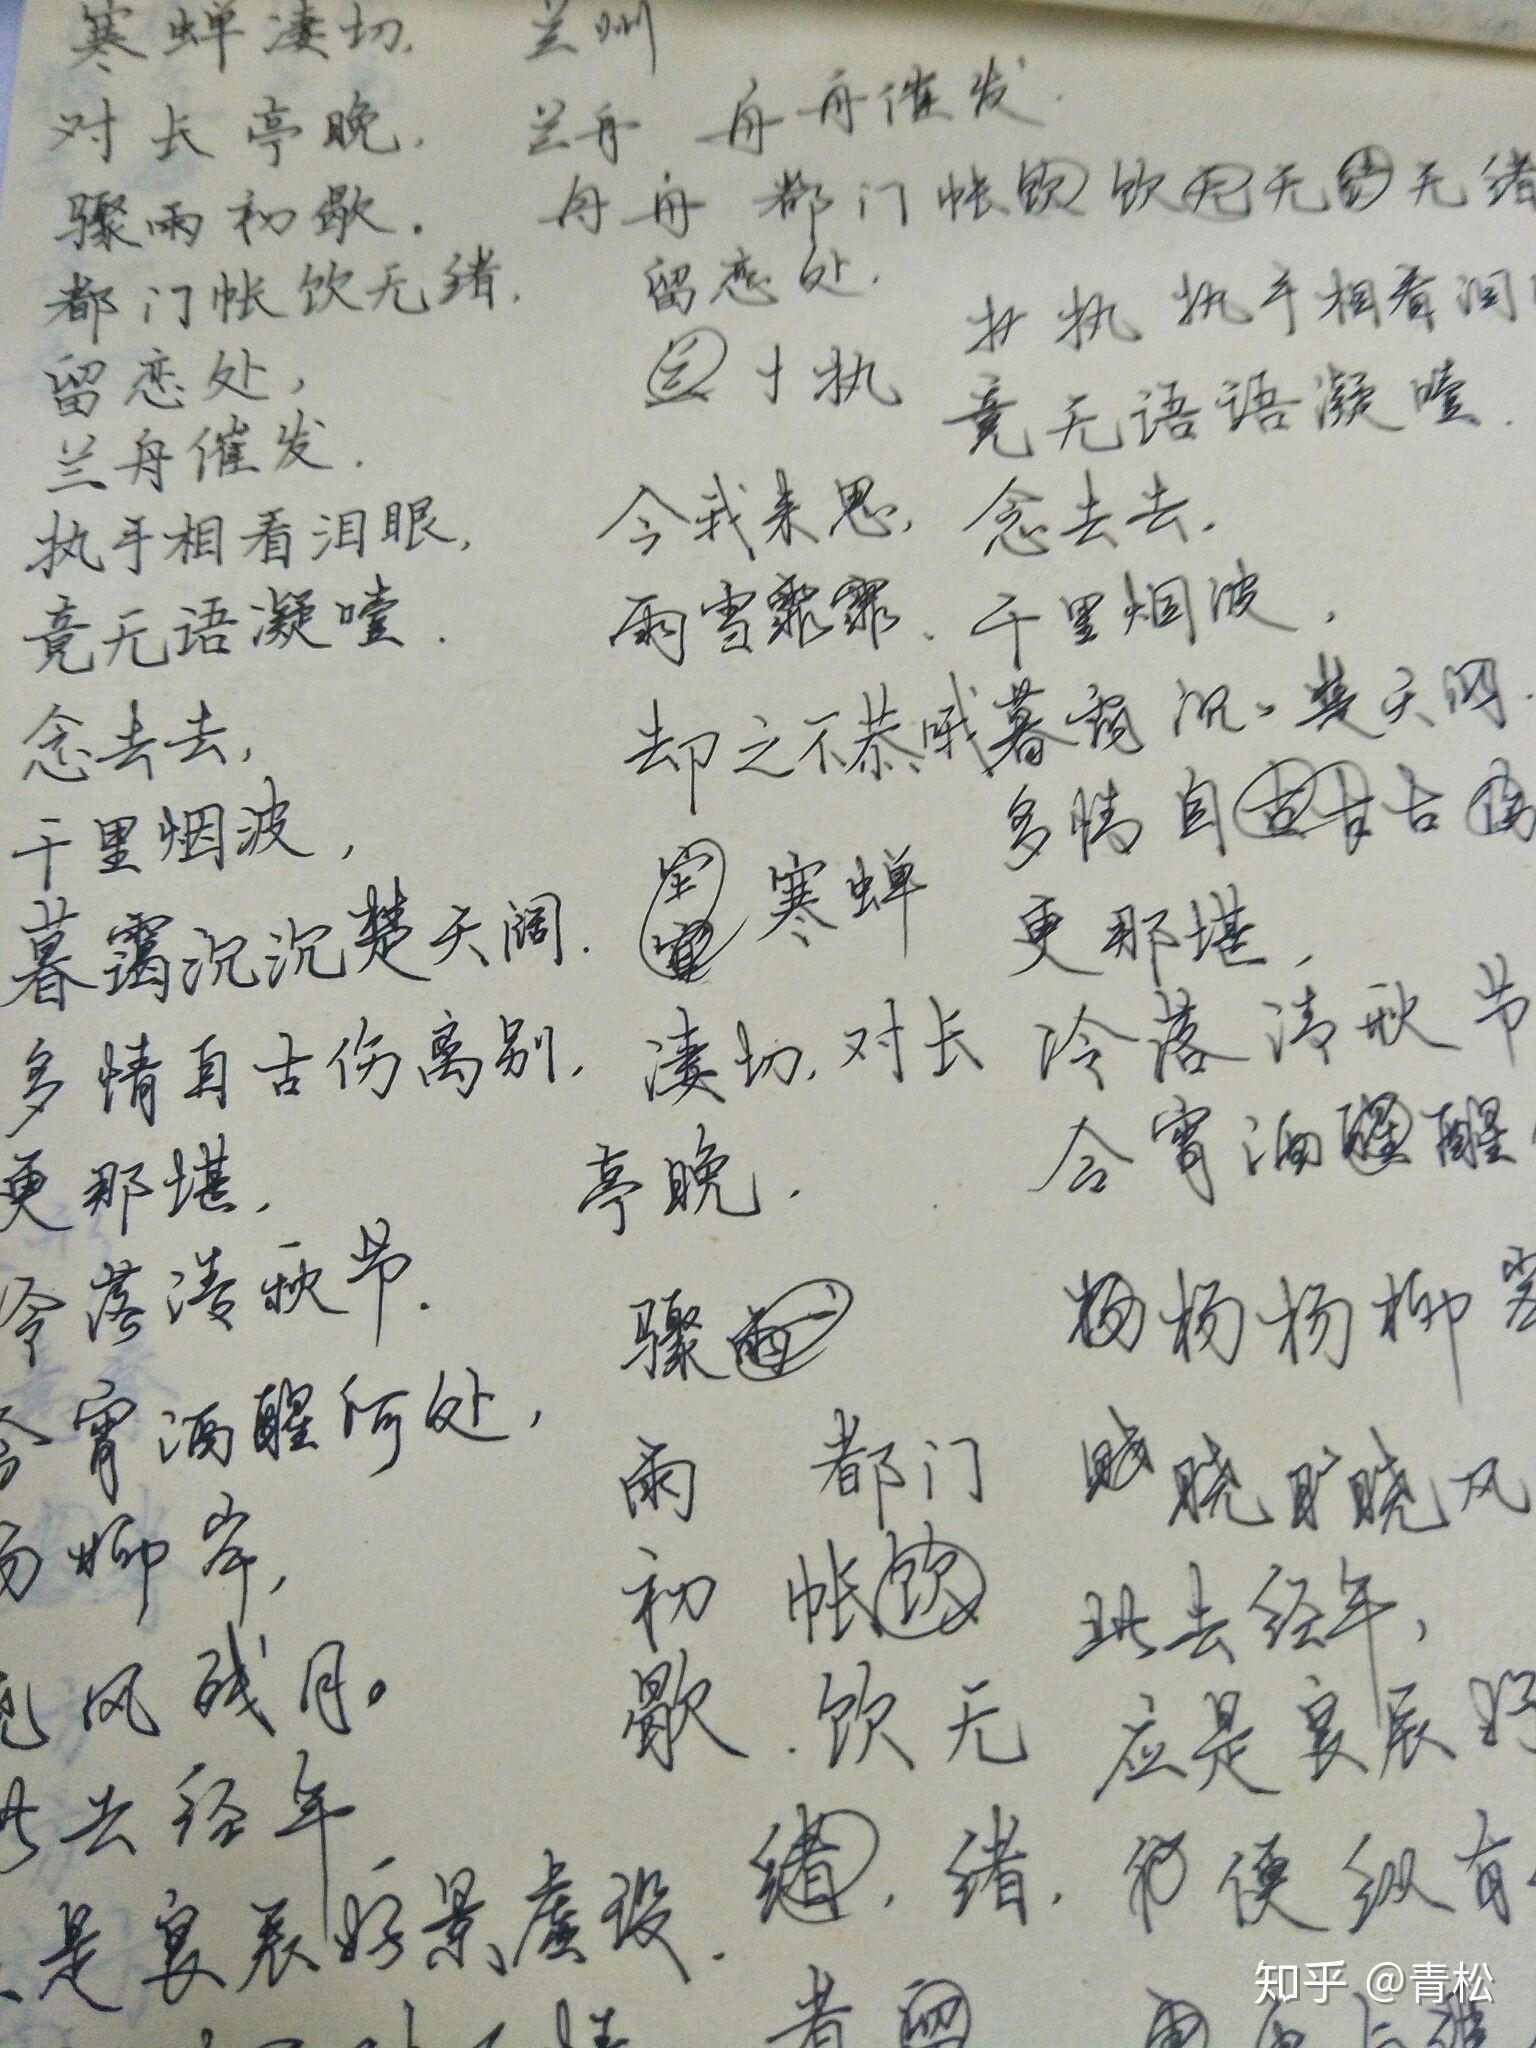 寒蝉凄切.
对长亭晚.
骤雨初歇.
都门帐饮无绪.
留恋处,
兰舟催发.
执手相看泪眼,
竟无语凝噎.
念去去,
千里烟波,
暮霭沉沉楚天阔.
多情自古伤离别.
更那堪,
冷落清秋节.
宵酒醒何处,
柳岸,
风残月。
去经年
是良辰好景虚设.
兰州
兰舟 舟舟催发.
舟舟 都门帐饮饮无无绪无绪
留恋处.
执
今我来思,
雨雪霏霏.
却之不恭哦
寒蝉
凄切,对长
亭晚.
骤雨
雨 都门
初 帐饮
歇.饮无
绪,绪.
者留
执 执手相看泪
竟无语语凝噎.
念去去.
千里烟波,
暮霭沉。楚天阔.
多情自古古古伤
更那堪,
冷落清秋节
今宵酒醒醒
杨杨杨柳岸
晓 晓风
此去经年,
应是良辰好
便纵有
知乎 @青松